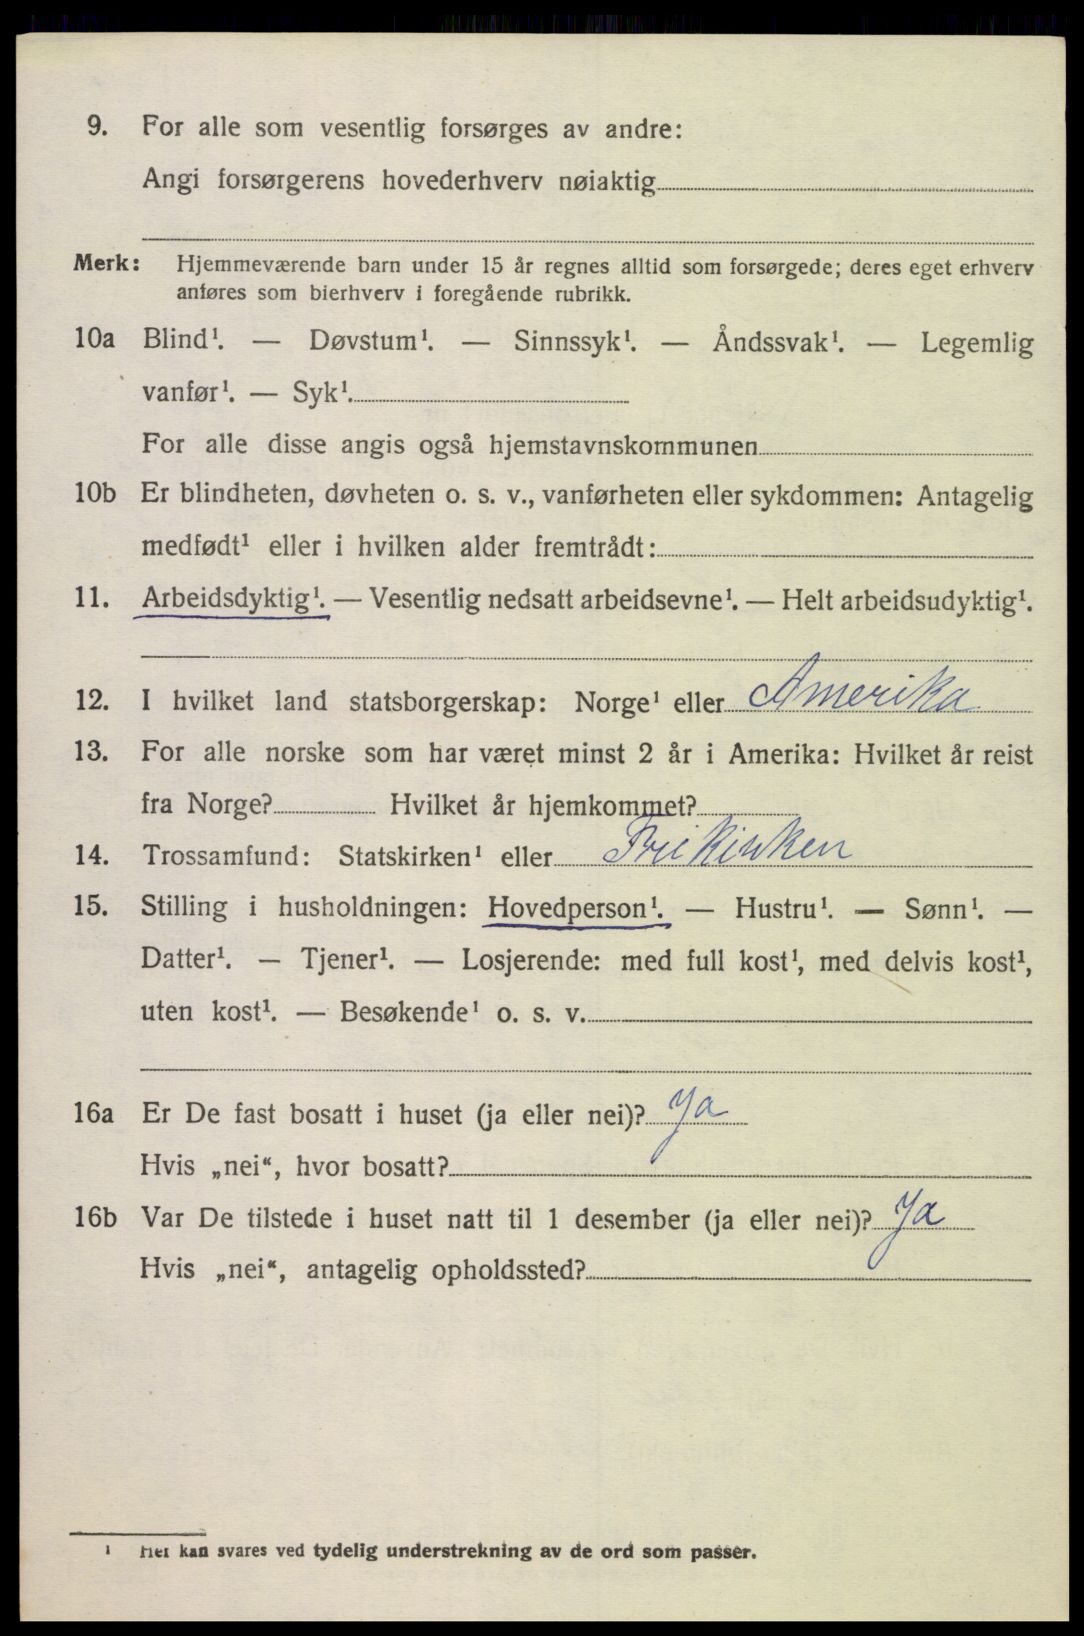 9. For alle som vesentlig forsørges av andre:
Angi forsørgerens hovederhverv nøiaktig
Merk: Hjemmeværende barn under 15 år regnes alltid som forsørgede; deres eget erhverv
anføres som bierhverv i foregående rubrikk.
10a Blind¹. — Døvstum¹. — Sinnssyk¹. — Åndssvak¹. — Legemlig
vanfør¹. — Syk¹.
For alle disse angis også hjemstavnskommunen
10b Er blindheten, døvheten o. s. v., vanførheten eller sykdommen: Antagelig
medfødt¹ eller i hvilken alder fremtrådt:
11. Arbeidsdyktig¹. — Vesentlig nedsatt arbeidsevne¹. — Helt arbeidsudyktig¹.
12. I hvilket land statsborgerskap: Norge¹ eller Amerika
13. For alle norske som har været minst 2 år i Amerika: Hvilket år reist
fra Norge? Hvilket år hjemkommet?
14. Trossamfund: Statskirken¹ eller Frikirken
15. Stilling i husholdningen: Hovedperson¹. — Hustru¹. — Sønn¹. —
Datter¹. — Tjener¹. — Losjerende: med full kost¹, med delvis kost¹,
uten kost¹. — Besøkende¹ o. s. v.
16a Er De fast bosatt i huset (ja eller nei)? Ja
Hvis „nei“, hvor bosatt?
16b Var De tilstede i huset natt til 1 desember (ja eller nei)? Ja
Hvis „nei“, antagelig opholdssted?
¹ Her kan svares ved tydelig understrekning av de ord som passer.